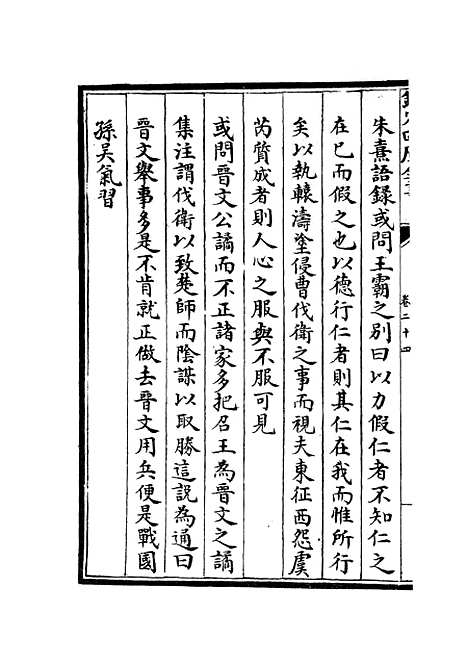 朱熹語録或問王霸之别曰以力假仁者不知仁之
在已而假之也以德行仁者則其仁在我而惟所行
矣以執轅濤塗侵曹伐衛之事而視夫東征西怨虞
芮質成者則人心之服與不服可見
或問晉文公譎而不正諸家多把召王為晉文之譎
集注謂伐衛以致楚師而陰謀以取勝這説為通曰
晉文舉事多是不肯就正做去晉文用兵便是戰國
孫吴氣習
卷二十四